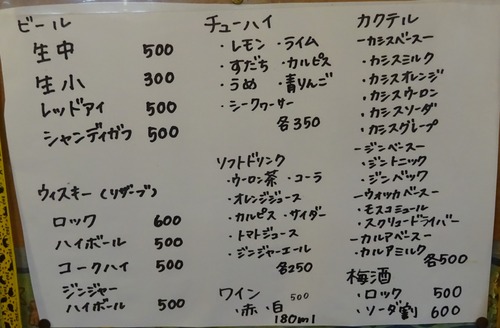 ビール
生中 500
生小 300
レッドアイ 500
シャンディガフ 500
ウィスキー(リザーブ)
ロック 600
ハイボール 500
コークハイ 500
ジンジャー
ハイボール 500
チューハイ
・レモン ・ライム
・すだち ・カルピス
・うめ ・青りんご
・シークヮーサー
各350
ソフトドリンク
・ウーロン茶 ・コーラ
・オレンジジュース
・カルピス ・サイダー
・トマトジュース
・ジンジャーエール
各250
ワイン 500
・赤 ・白
180ml
カクテル
ーカシスベースー
・カシスミルク
・カシスオレンジ
・カシスウーロン
・カシスソーダ
・カシスグレープ
ージンベースー
・ジントニック
・ジンバック
ーウォッカベースー
・モスコミュール
・スクリュードライバー
ーカルアベースー
・カルアミルク
各500
梅酒
・ロック 500
・ソーダ割 600